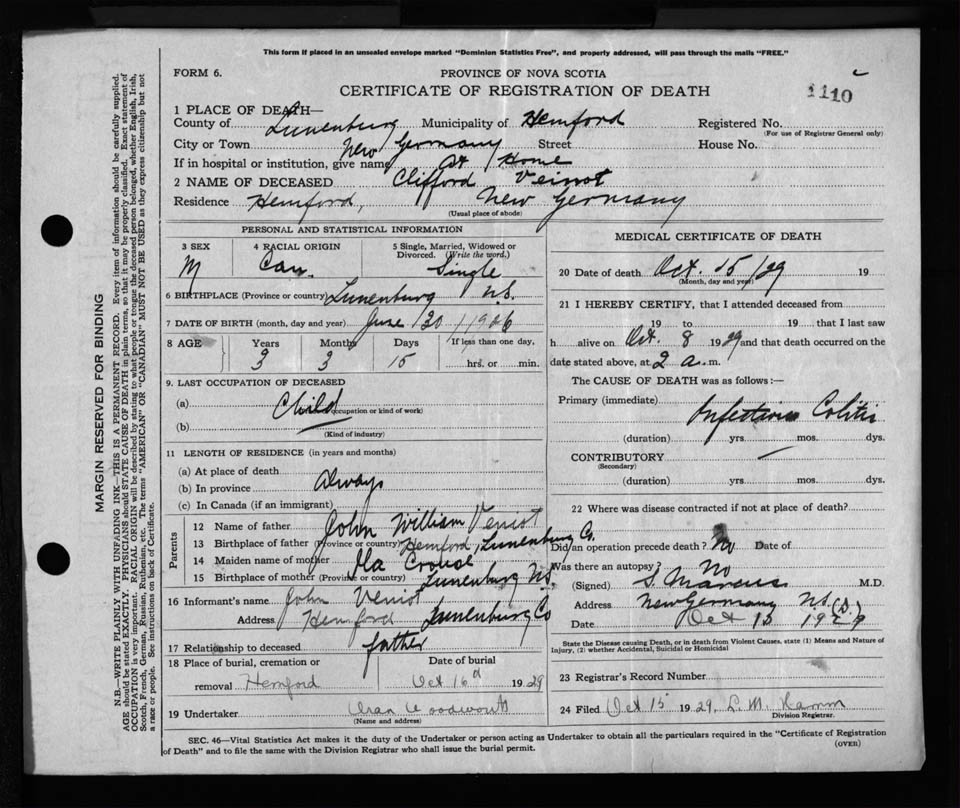 This form if placed in an unsealed envelope marked "Dominion Statistics Free", and properly addressed, will pass through the mails "FREE."
FORM 6.
PROVINCE OF NOVA SCOTIA
CERTIFICATE OF REGISTRATION OF DEATH
1110
1 PLACE OF DEATH—
County of Lunenburg Municipality of Hemford Registered No.
(For use of Registrar General only)
City or Town New Germany Street House No.
If in hospital or institution, give name At Home
2 NAME OF DECEASED Clifford Veinot
Residence Hemford, New Germany
(Usual place of abode)
PERSONAL AND STATISTICAL INFORMATION
3 SEX 4 RACIAL ORIGIN 5 Single, Married, Widowed or Divorced. (Write the word.)
M Can. Single
6 BIRTHPLACE (Province or country) Lunenburg N.S.
7 DATE OF BIRTH (month, day and year) June / 30 / 1926
8 AGE Years Months Days If less than one day,
3 3 15 hrs. or min.
9. LAST OCCUPATION OF DECEASED
(a) Child
(Occupation or kind of work)
(b)
(Kind of industry)
11 LENGTH OF RESIDENCE (in years and months)
(a) At place of death
(b) In province Always
(c) In Canada (if an immigrant)
Parents
12 Name of father John William Veniot
13 Birthplace of father (Province or country) Hemford, Lunenburg Co.
14 Maiden name of mother Ila Crouse
15 Birthplace of mother (Province or country) Lunenburg N.S.
16 Informant's name John Veniot
Address Hemford Lunenburg Co
17 Relationship to deceased father
18 Place of burial, cremation or Date of burial
removal Hemford Oct 16d 1929
19 Undertaker Woodworth
(Name and address)
MEDICAL CERTIFICATE OF DEATH
20 Date of death Oct. 15/29 19
(Month, day and year)
21 I HEREBY CERTIFY, that I attended deceased from
19 to 19 that I last saw
h alive on Oct. 8 1929 and that death occurred on the
date stated above, at 2 a.m.
The CAUSE OF DEATH was as follows:—
Primary (immediate) Infectious Colitis
(duration) yrs. mos. dys.
CONTRIBUTORY
(Secondary)
(duration) yrs. mos. dys.
22 Where was disease contracted if not at place of death?
Did an operation precede death? No Date of
Was there an autopsy? No
(Signed) S. Marcus M.D.
Address New Germany N.S.
Date Oct 15 1929
State the Disease causing Death, or in death from Violent Causes, state (1) Means and Nature of
Injury, (2) whether Accidental, Suicidal or Homicidal
23 Registrar's Record Number
24 Filed Oct 15 1929. L. M. Hamm
Division Registrar.
SEC. 46—Vital Statistics Act makes it the duty of the Undertaker or person acting as Undertaker to obtain all the particulars required in the "Certificate of Registration
of Death" and to file the same with the Division Registrar who shall issue the burial permit.
(OVER)
MARGIN RESERVED FOR BINDING
N.B.—WRITE PLAINLY WITH UNFADING INK—THIS IS A PERMANENT RECORD. Every item of information should be carefully supplied.
AGE should be stated EXACTLY. PHYSICIANS should STATE CAUSE OF DEATH in plain terms, so that it may be properly classified. Exact statement of
OCCUPATION is very important. RACIAL ORIGIN will be described by stating to what people or tongue the deceased person belonged, whether English, Irish,
Scotch, French, German, Russian, Ruthenian, etc. The terms "AMERICAN" OR "CANADIAN" MUST NOT BE USED as they express citizenship but not
a race or people. See instructions on back of Certificate.